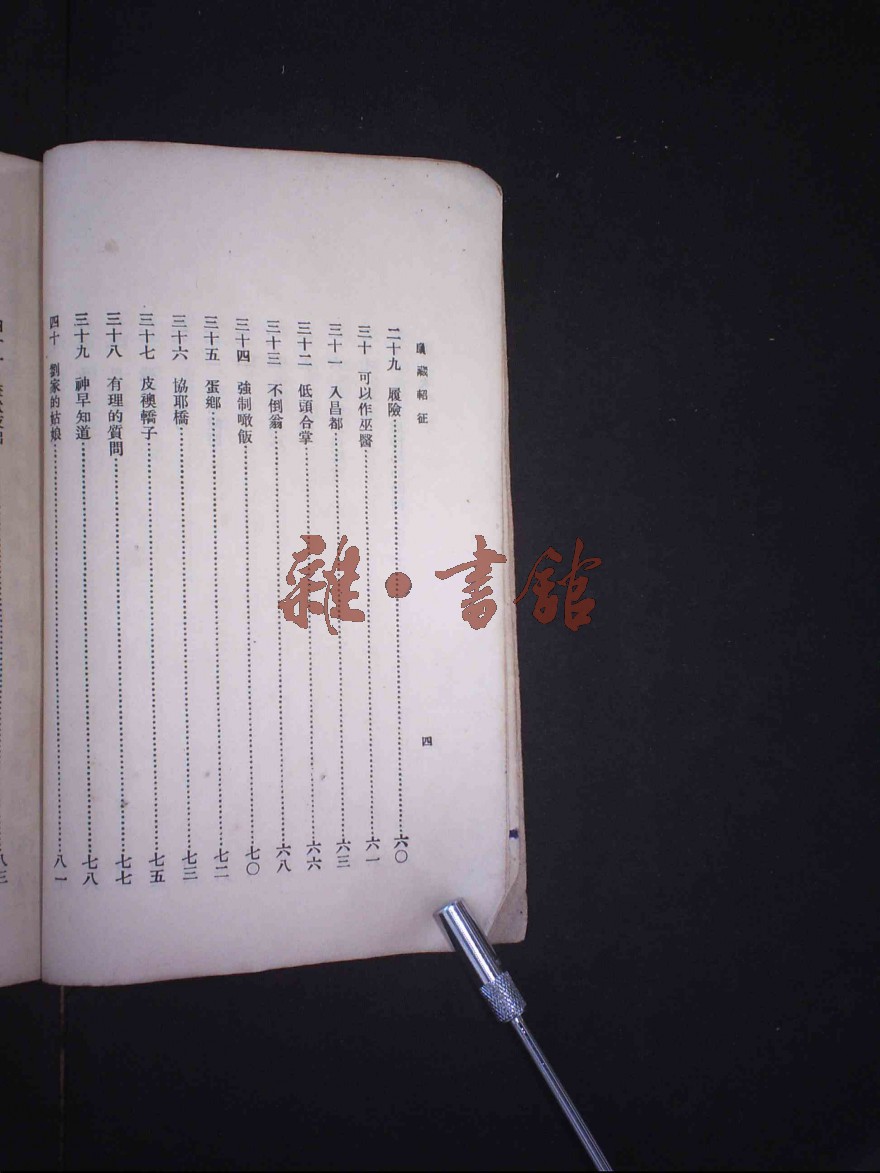 康藏軺征
二十九 履險 六〇
三十 可以作巫醫 六一
三十一 入昌都 六三
三十二 低頭合掌 六六
三十三 不倒翁 六八
三十四 強制噉飯 七〇
三十五 蛋鄉 七二
三十六 協耶橋 七三
三十七 皮襖轎子 七五
三十八 有理的質問 七七
三十九 神早知道 七八
四十 劉家的姑娘 八一
四
八三
雜·書館